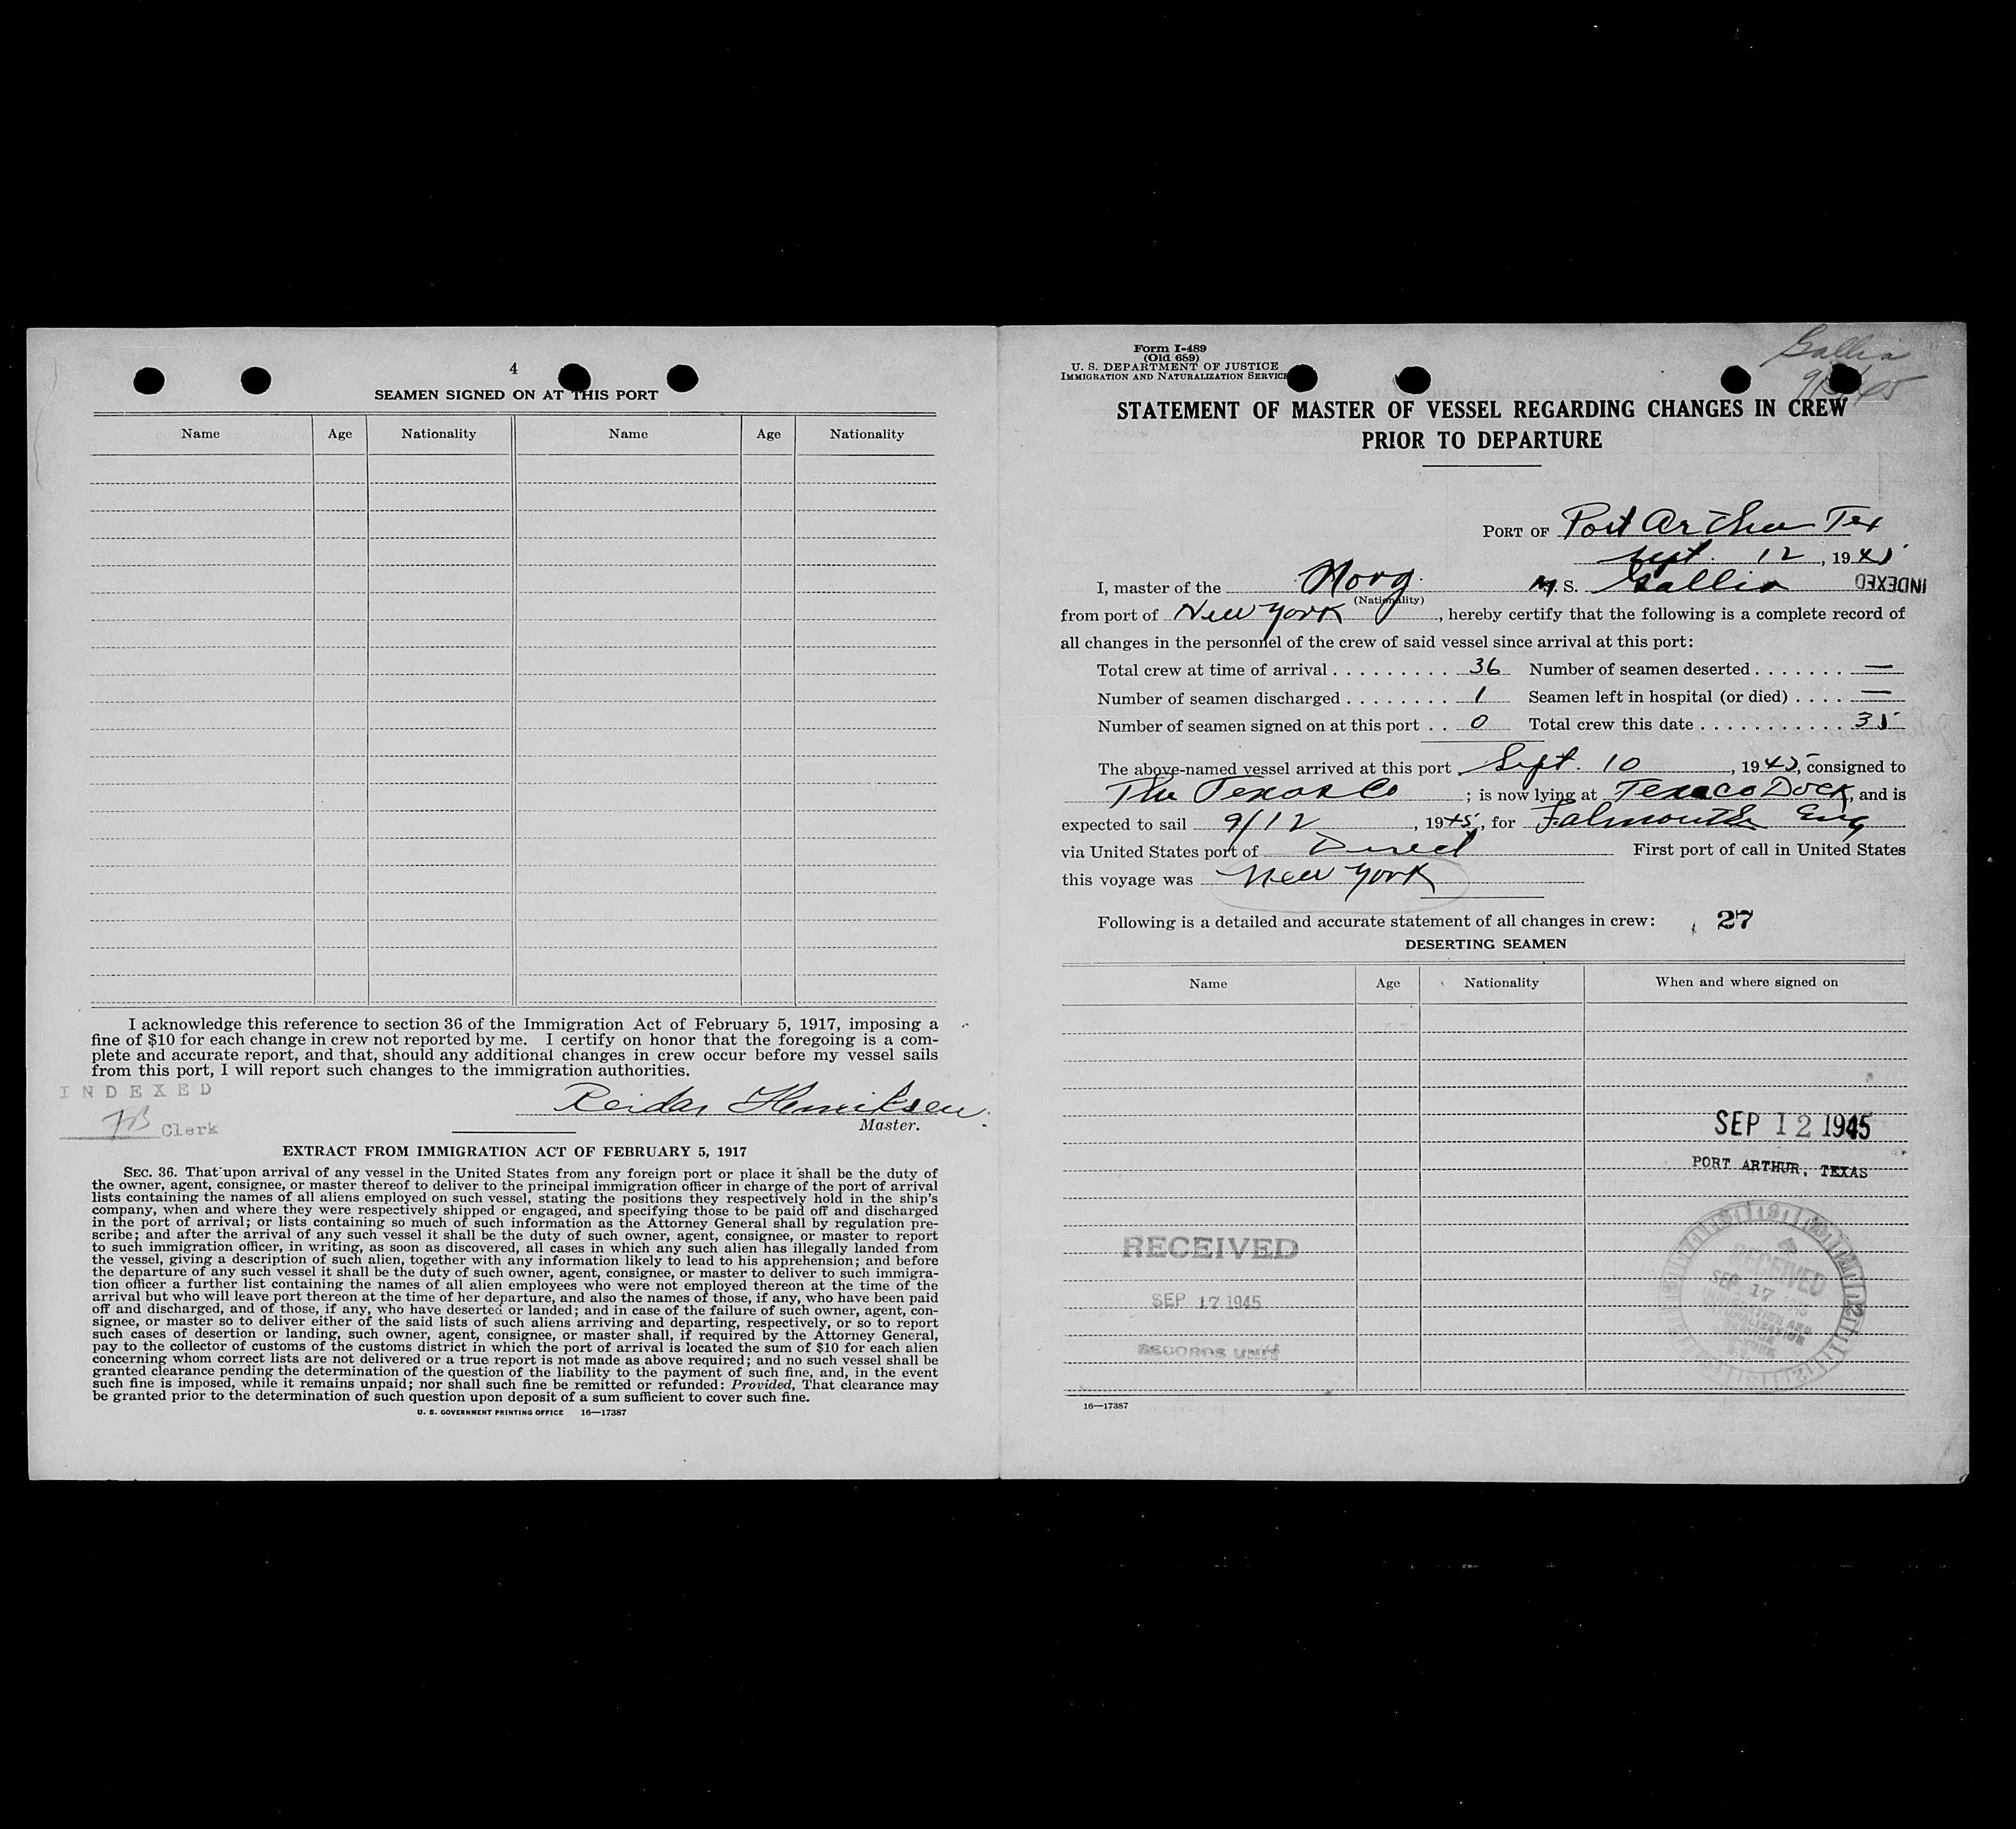 4
SEAMEN SIGNED ON AT THIS PORT
Name Age Nationality Name Age Nationality
I acknowledge this reference to section 36 of the Immigration Act of February 5, 1917, imposing a
fine of $10 for each change in crew not reported by me. I certify on honor that the foregoing is a com-
plete and accurate report, and that, should any additional changes in crew occur before my vessel sails
from this port, I will report such changes to the immigration authorities.
INDEXED
Clerk
Reidar Henriksen
Master.
EXTRACT FROM IMMIGRATION ACT OF FEBRUARY 5, 1917
SEC. 36. That upon arrival of any vessel in the United States from any foreign port or place it shall be the duty of
the owner, agent, consignee, or master thereof to deliver to the principal immigration officer in charge of the port of arrival
lists containing the names of all aliens employed on such vessel, stating the positions they respectively hold in the ship's
company, when and where they were respectively shipped or engaged, and specifying those to be paid off and discharged
in the port of arrival; or lists containing so much of such information as the Attorney General shall by regulation pre-
scribe; and after the arrival of any such vessel it shall be the duty of such owner, agent, consignee, or master to report
to such immigration officer, in writing, as soon as discovered, all cases in which any such alien has illegally landed from
the vessel, giving a description of such alien, together with any information likely to lead to his apprehension; and before
the departure of any such vessel it shall be the duty of such owner, agent, consignee, or master to deliver to such immigra-
tion officer a further list containing the names of all alien employees who were not employed thereon at the time of the
arrival but who will leave port thereon at the time of her departure, and also the names of those, if any, who have been paid
off and discharged, and of those, if any, who have deserted or landed; and in case of the failure of such owner, agent, con-
signee, or master so to deliver either of the said lists of such aliens arriving and departing, respectively, or so to report
such cases of desertion or landing, such owner, agent, consignee, or master shall, if required by the Attorney General,
pay to the collector of customs of the customs district in which the port of arrival is located the sum of $10 for each alien
concerning whom correct lists are not delivered or a true report is not made as above required; and no such vessel shall be
granted clearance pending the determination of the question of the liability to the payment of such fine, and, in the event
such fine is imposed, while it remains unpaid; nor shall such fine be remitted or refunded: Provided, That clearance may
be granted prior to the determination of such question upon deposit of a sum sufficient to cover such fine.
U. S. GOVERNMENT PRINTING OFFICE 16—17387
Form I-489
(Old 689)
U. S. DEPARTMENT OF JUSTICE
IMMIGRATION AND NATURALIZATION SERVICE
Gallia
STATEMENT OF MASTER OF VESSEL REGARDING CHANGES IN CREW
PRIOR TO DEPARTURE
PORT OF Port Arthur Tex
Sept. 12, 1945
I, master of the Norg. M. S. Gallia INDEXED
(Nationality)
from port of New York, hereby certify that the following is a complete record of
all changes in the personnel of the crew of said vessel since arrival at this port:
Total crew at time of arrival 36 Number of seamen deserted —
Number of seamen discharged 1 Seamen left in hospital (or died) —
Number of seamen signed on at this port 0 Total crew this date 35
The above-named vessel arrived at this port Sept. 10, 1945, consigned to
The Texas Co; is now lying at Texaco Dock, and is
expected to sail 9/12, 1945, for Falmouth Eng
via United States port of Direct First port of call in United States
this voyage was New York
Following is a detailed and accurate statement of all changes in crew: 27
DESERTING SEAMEN
Name Age Nationality When and where signed on
SEP 12 1945
PORT ARTHUR, TEXAS
RECEIVED
SEP 17 1945
RECORDS UNIT
RECEIVED
SEP 17 1945
16—17387